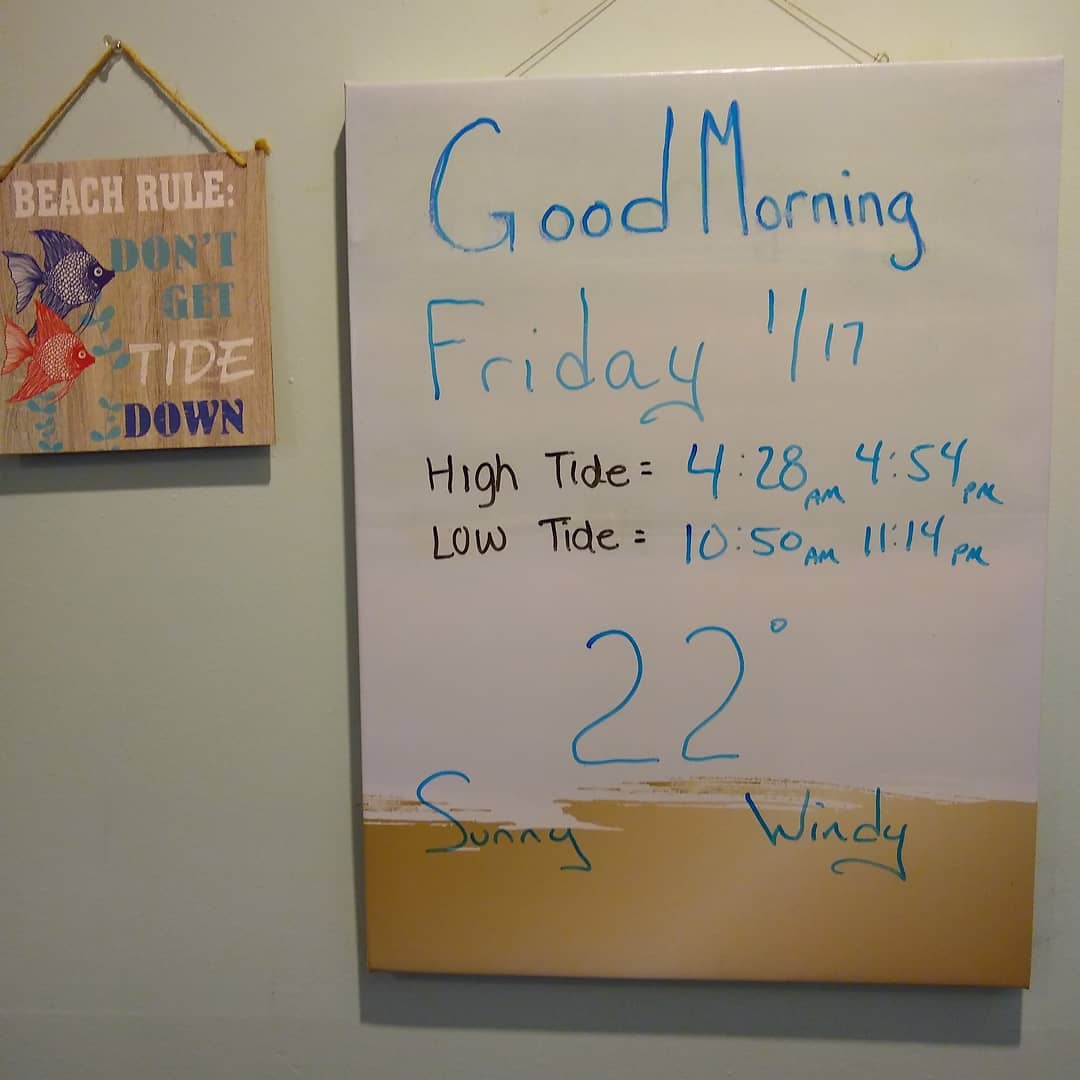 BEACH RULE:
DON'T
GET
TIDE
DOWN
Good Morning
Friday 1/17
High Tide = 4:28 AM 4:54 PM
LOW Tide = 10:50 AM 11:14 PM
22°
Sunny Windy